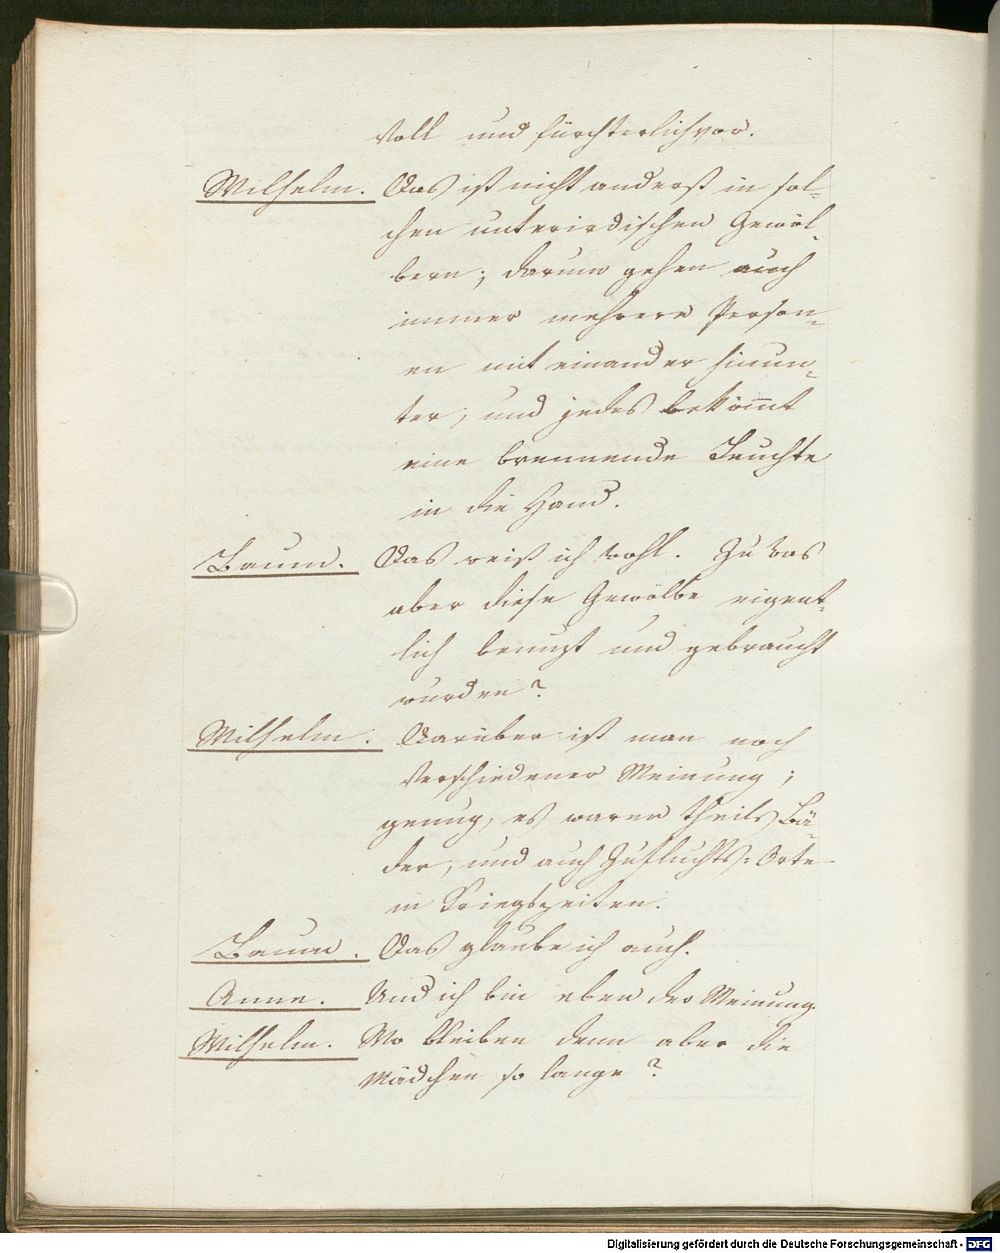 voll und fürchterlich vor.
Wilhelm. Das ist nicht anderst in sol=
chen unterirdischen Gewöl=
bern; darum gehen auch
immer mehrere Person=
en mit einander hinun=
ter, und jedes bekömmt
eine brennende Leuchte
in die Hand.
Baum. Das weiß ich wohl. Zu was
aber diese Gewölbe eigent=
lich benuzt und gebraucht
wurden?
Wilhelm. Darüber ist man noch
verschiedener Meinung;
genug, es waren theils Bä=
der, und auch Zufluchts=Orte
in Kriegszeiten.
Baum. Das glaube ich auch.
Anne. Und ich bin eben der Meinung.
Wilhelm. Wo bleiben denn aber die
Mädchen so lange?
Digitalisierung gefördert durch die Deutsche Forschungsgemeinschaft - DFG